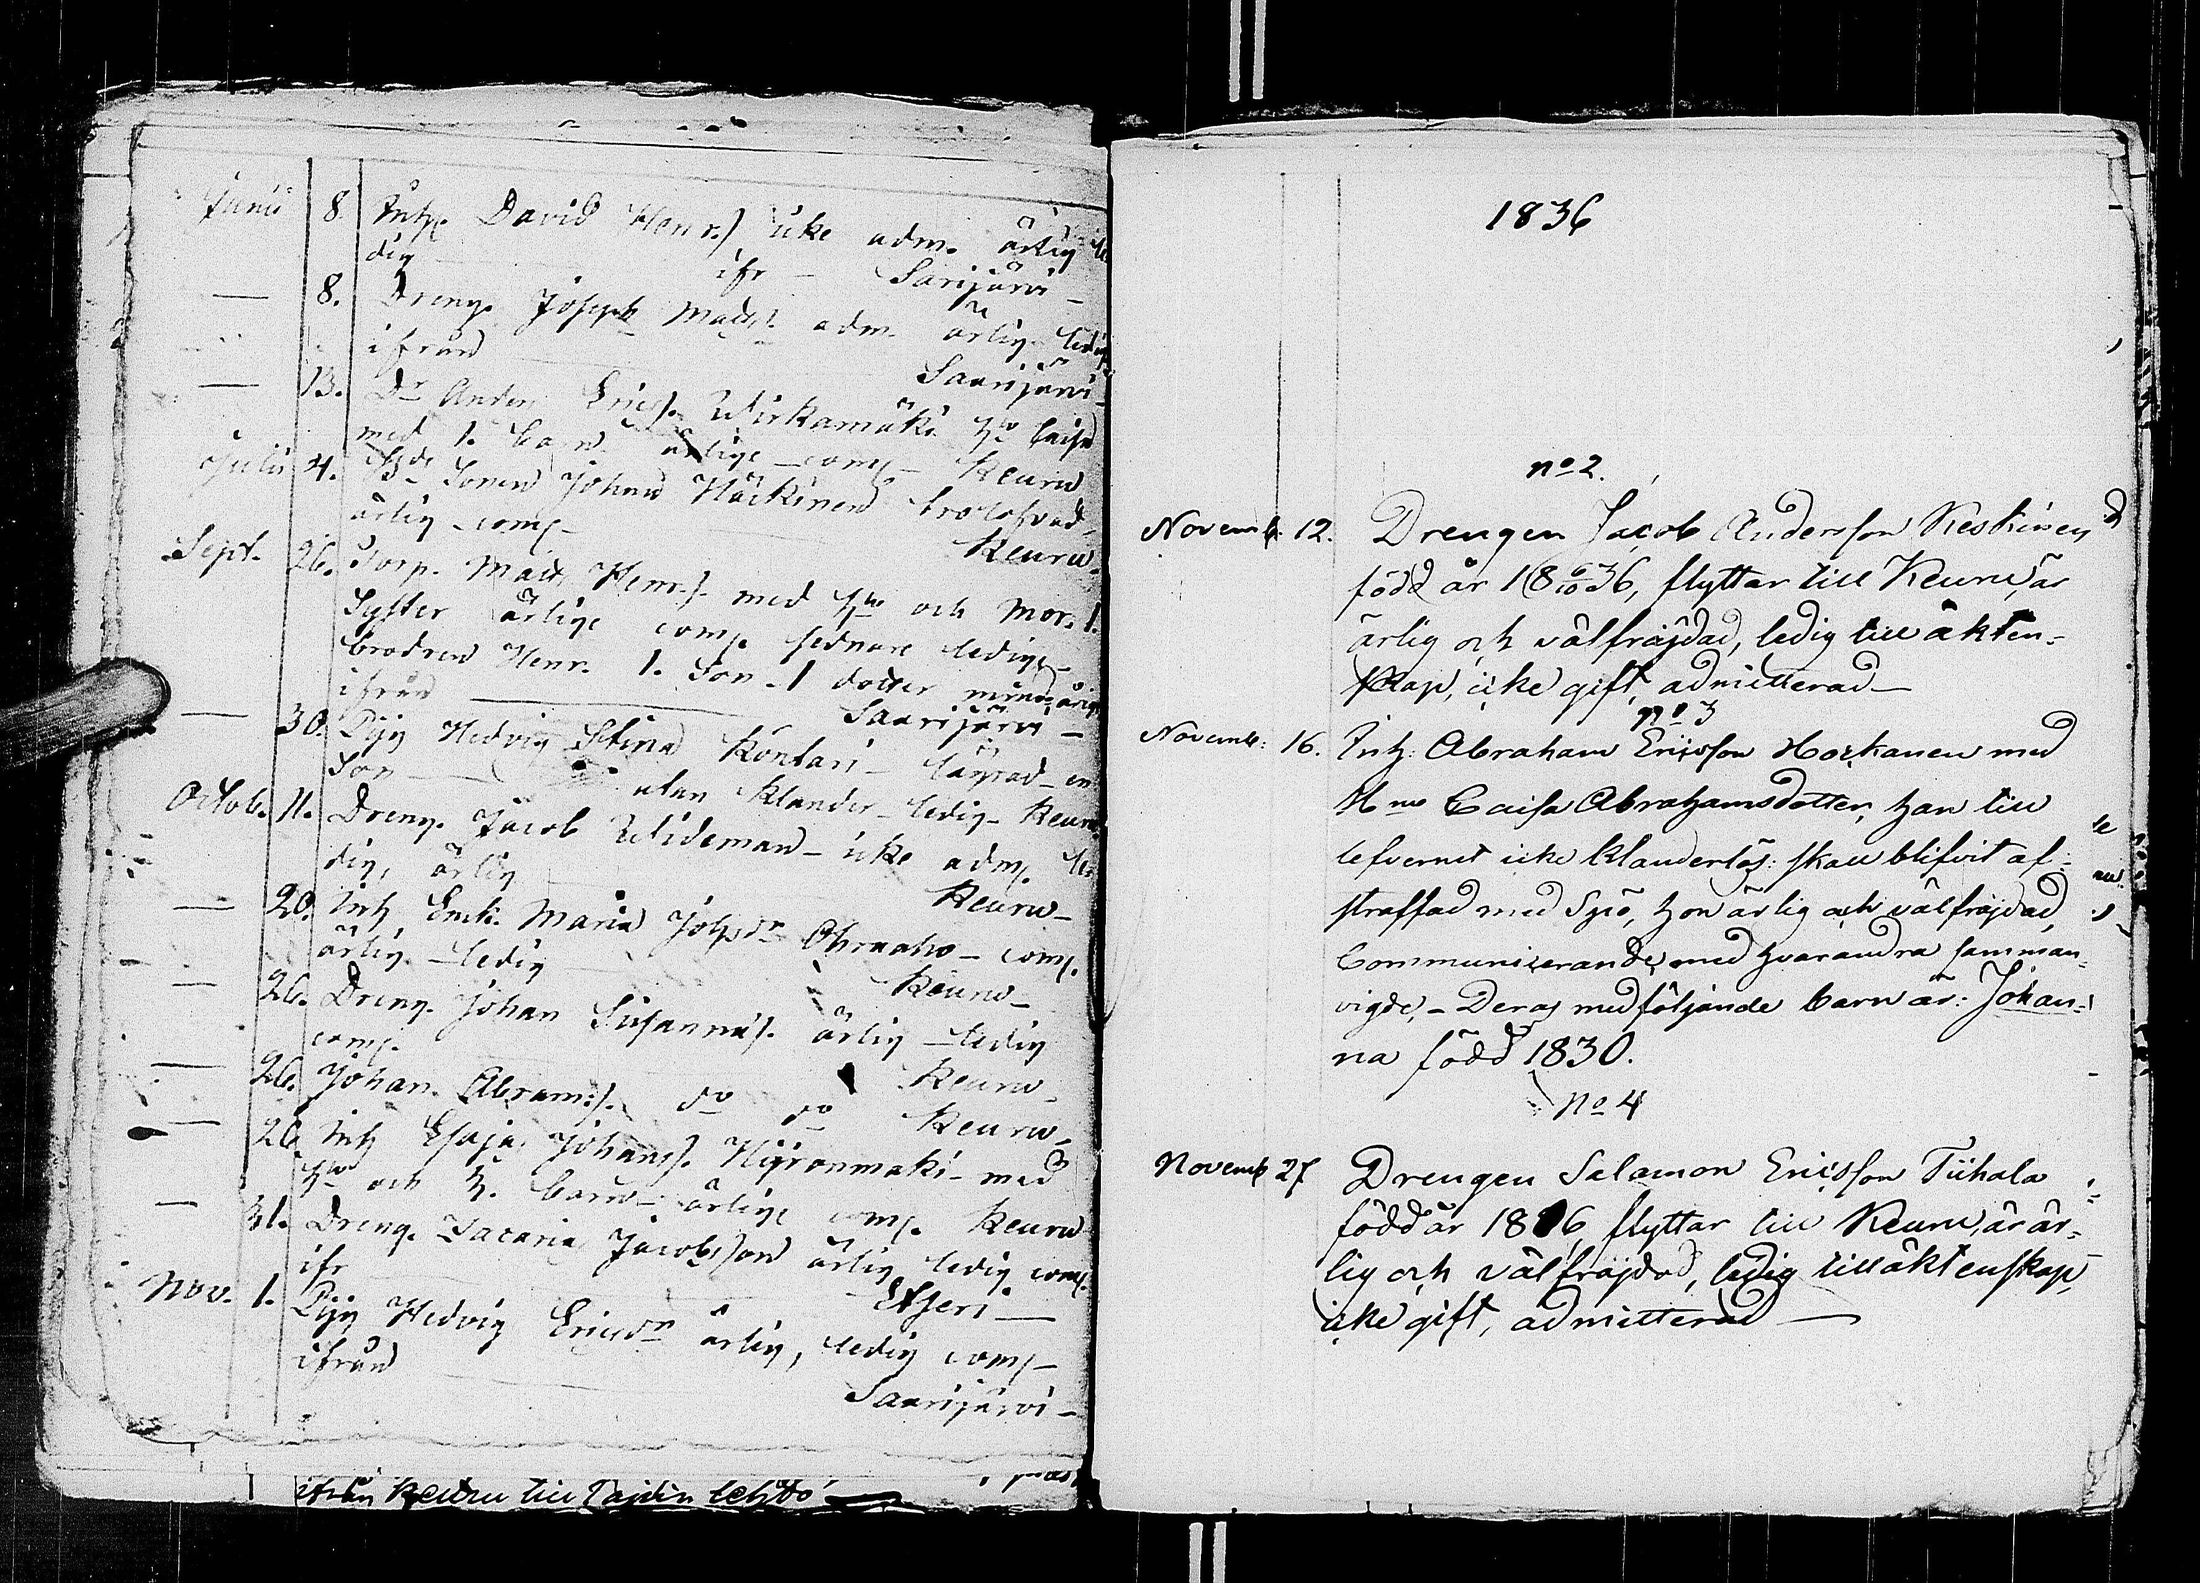 Junii 8. Inh. David Henr:s. icke adm. ärlig le
dig ifr - Sarijärvi -
— 8. Dreng. Joseph Matts:s. adm. ärlig ledig
ifrån Saarijärvi -
— 13. Dr Anders Erics:s. Wirkamäki Ho Caisa
med 1. barn ärlige - com. - Keuru
Julii 4. Sonen Johan Häckinen
ärlig - com. - Keuru -
Sept. 26. Torp. Matts Henr:s. med Ho och Mor. 1.
Syster ärlige com. sednare ledige -
brodren Henr. 1. Son - 1 dotter minderårig
ifrån Saarijärvi -
— 30. Pig. Hedvig Stina Kontari -
Son - utan klander - ledig - Keuru
Octob. 11. Dreng. Jacob Wideman - icke adm. le
dig, ärlig Keuru -
— 20. Inh. Enck. Maria Johsdr Ohraaho - com.
ärlig - ledig Keuru -
— 26. Dreng. Johan Susannäs. ärlig - ledig
com. Keuru -
— 26. Johan Abram:s. do do Keuru -
— 26. Inh Esajas Johans:s. Hijronmäki - med
Ho och 3. barn - ärlige com. Keuru
— 31. Dreng. Zacarias Jacobsson ärlig ledig com.
ifr Etseri -
Nov. 1. Pig Hedvig Ericsdr ärlig, ledig com -
ifrån Saarijärvi -
ifrån Keuru till Pajulehto
1836
no 2.
Novemb: 12. Drengen Jacob Andersson Keskinen
född år 18 6/10 36, flyttar till Keuru, är
ärlig och välfräjdad, ledig till äkten-
skap, icke gift, admitterad —
no 3
Novemb: 16. Inh: Abraham Ericsson Hockanen med
H:no Caisa Abrahamsdotter, han till
lefvernet icke klanderlös: skall blifvit af-
straffad med Spö, hon ärlig och välfräjdad,
Communicerande, med hvarandra samman-
vigde, - Deras medföljande barn är: Johan-
na född 1830.
No 4
Novemb 27 Drengen Salamon Ericsson Tiihala
född år 1816 flyttar till Keuru, är är-
lig och välfräjdad, ledig till äktenskap,
icke gift, admitterad —